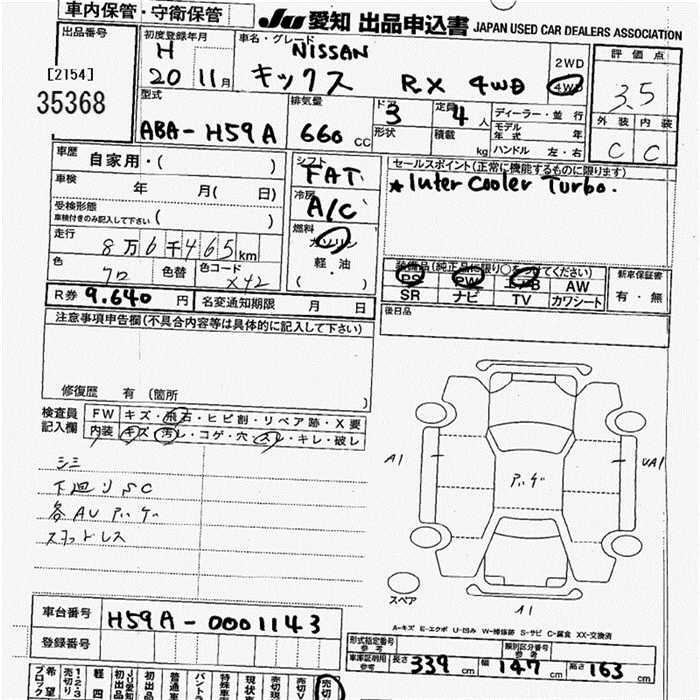 車内保管・守衛保管
JU 愛知 出品申込書 JAPAN USED CAR DEALERS ASSOCIATION
出品番号
[2154]
35368
初度登録年月
H
20 11月
車名・グレード
NISSAN
キックス RX 4WD
2WD
4WD
評価点
3.5
外装 内装
C C
型式
ABA-H59A
排気量
660 cc
ドア
3
形状
定員
4 人
積載
kg
ディーラー・並行
モデル年式 年
ハンドル 左・右
車歴
自家用・( )
車検
年 月( 日)
受検形態
車検付きのみ記入して下さい ( )
走行
8万6千465km
色
クロ
色替
色コード
X42
シフト
FAT
冷房
A/C
燃料
ガソリン
軽・油
( )
セールスポイント(正常に機能するものに限ります)
★Inter Cooler Turbo.
装備品(純正品に限り○をつけてください)
PS PW エアB AW
SR ナビ TV カワシート
新車保証書
有・無
R券 9.640 円
名変通知期限 月 日
後日品
注意事項申告欄(不具合内容等は具体的に記入して下さい)
修復歴 有 (箇所 )
検査員記入欄
FW キズ・飛石・ヒビ割・リペア跡・X要
内装 キズ・汚レ・コゲ・穴・スレ・キレ・破レ
シミ
下廻りSC
各AU アッゲ
スタッドレス
A1
UA1
アッゲ
A1
スペア
A-キズ E-エクボ U-凹み W-補修跡 S-サビ C-腐食 XX-交換済
車台番号 H59A-0001143
登録番号
形式指定番号
参考
類別区分番号
参考
車庫証明用
参考
長さ 339 cm 幅 147 cm 高さ 163 cm